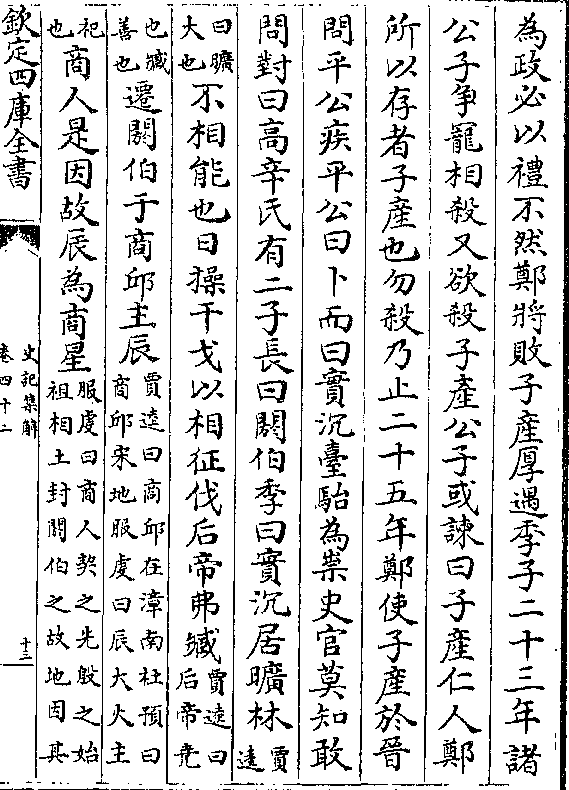 為政必以禮不然鄭將敗子產厚遇季子二十三年諸
公子爭寵相殺又欲殺子產公子或諫曰子產仁人鄭
所以存者子產也勿殺乃止二十五年鄭使子產於晉
問平公疾平公曰卜而曰實沉臺駘為祟史官莫知敢
問對曰高辛氏有二子長曰閼伯季曰實沉居曠林賈逵
曰曠大也不相能也日操干戈以相征伐后帝弗臧賈逵曰后帝堯
也臧善也遷閼伯于商邱主辰賈逵曰商邱在漳南杜預曰商邱宋地服虔曰辰大火主
祀也商人是因故辰為商星服虔曰商人契之先殷之始祖相土封閼伯之故地因其
欽定四庫全書
史記集解
卷四十二
十三